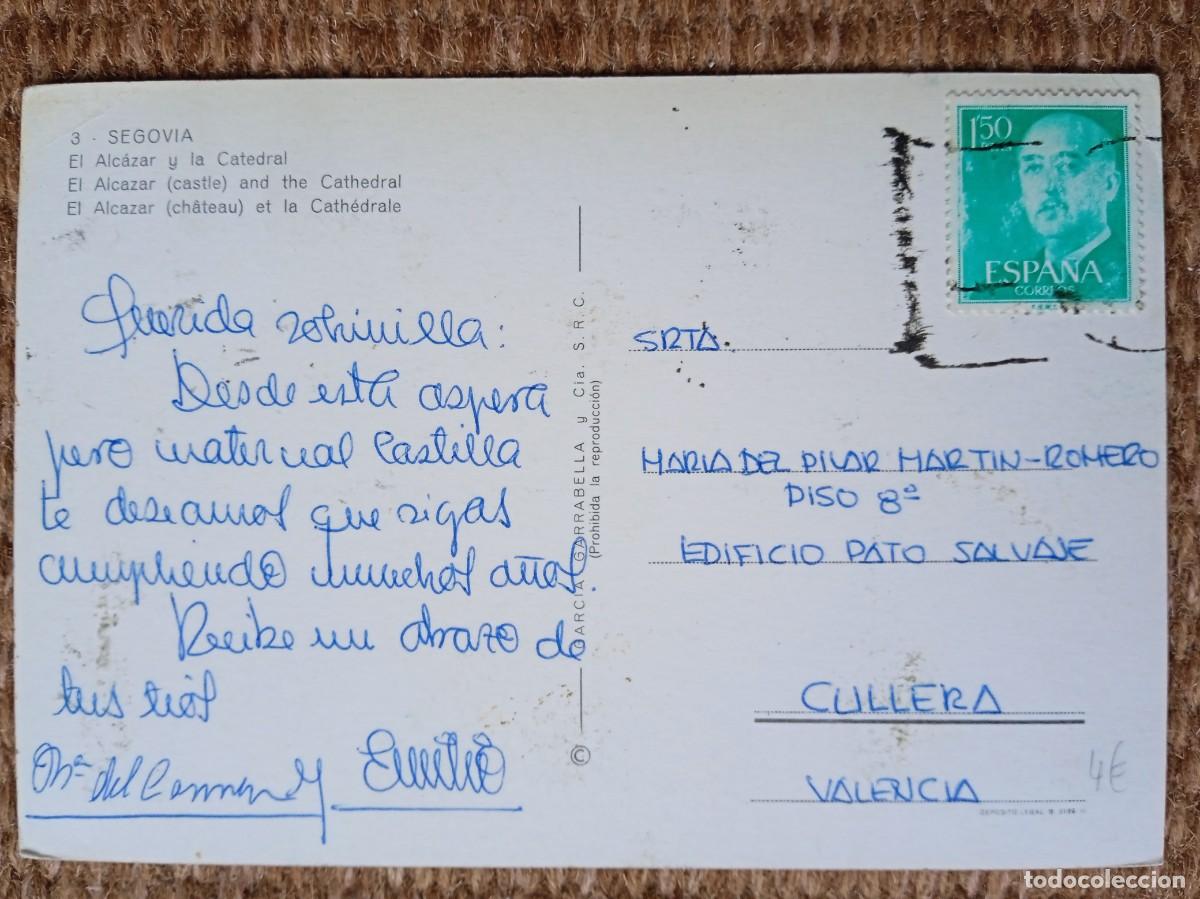 3 - SEGOVIA
El Alcázar y la Catedral
El Alcazar (castle) and the Cathedral
El Alcazar (château) et la Cathédrale
Querida sobrinilla:
Desde esta aspera
pero maternal Castilla
te deseamos que sigas
cumpliendo muchos años.
Recibe un abrazo de
tus tios
Mª del Carmen y Emilio
GARCIA GARRABELLA y Cia. S. R. C.
(Prohibida la reproducción)
©
1'50
ESPAÑA
CORREOS
SRTA.
MARIA DEL PILAR MARTIN-ROMERO
PISO 8º
EDIFICIO PATO SALVAJE
CULLERA
VALENCIA
4€
DEPOSITO LEGAL B.
todocoleccion